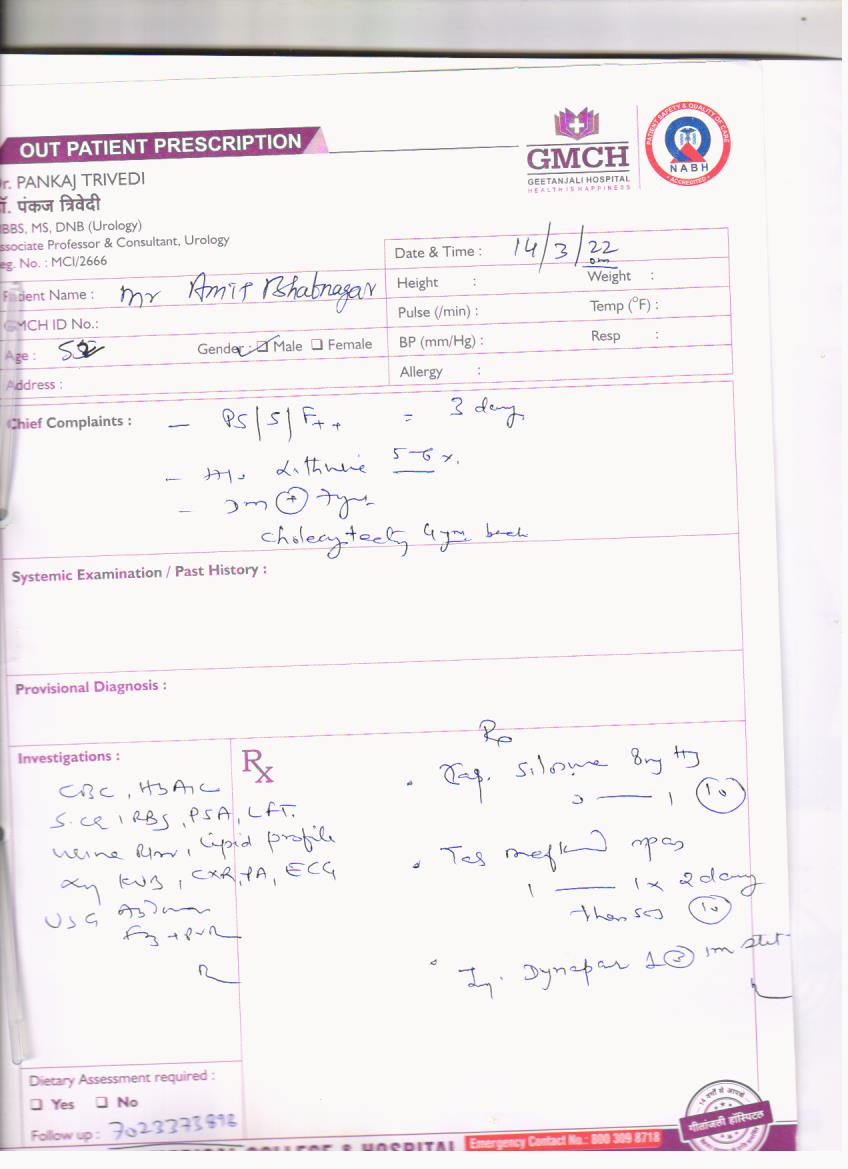 OUT PATIENT PRESCRIPTION
GMCH
GEETANJALI HOSPITAL
HEALTH IS HAPPINESS
PATIENT SAFETY & QUALITY OF CARE
NABH
ACCREDITED
r. PANKAJ TRIVEDI
पंकज त्रिवेदी
BBS, MS, DNB (Urology)
ssociate Professor & Consultant, Urology
eg. No. : MCI/2666
Date & Time : 14/3/22
Patient Name : Mr Amit Bhatnagar
Height : Weight :
GMCH ID No.:
Pulse (/min) : Temp (°F) :
Age : Gender : Male Female
BP (mm/Hg) : Resp :
Address :
Allergy :
Chief Complaints : — PS/S/F++ = 3 day
- H/o 5-6
- DM +
Cholecystectomy back
Systemic Examination / Past History :
Provisional Diagnosis :
Investigations :
CBC, HbA1C
S. Cr, RBS, PSA, LFT.
Urine R/m, Lipid profile
KUB, CXR, PA, ECG
USG
+ PVR
Rx
Cap. 8mg
1 10
Tab spas
1 — 1 x 2 day
then SOS 10
Inj. Dynapar 1 im stat
Dietary Assessment required :
Yes No
Follow up : 7023373898
COLLEGE & HOSPITAL
Emergency Contact No.: 800 309 8718
14 वर्षों से आपके
गीतांजली हॉस्पिटल